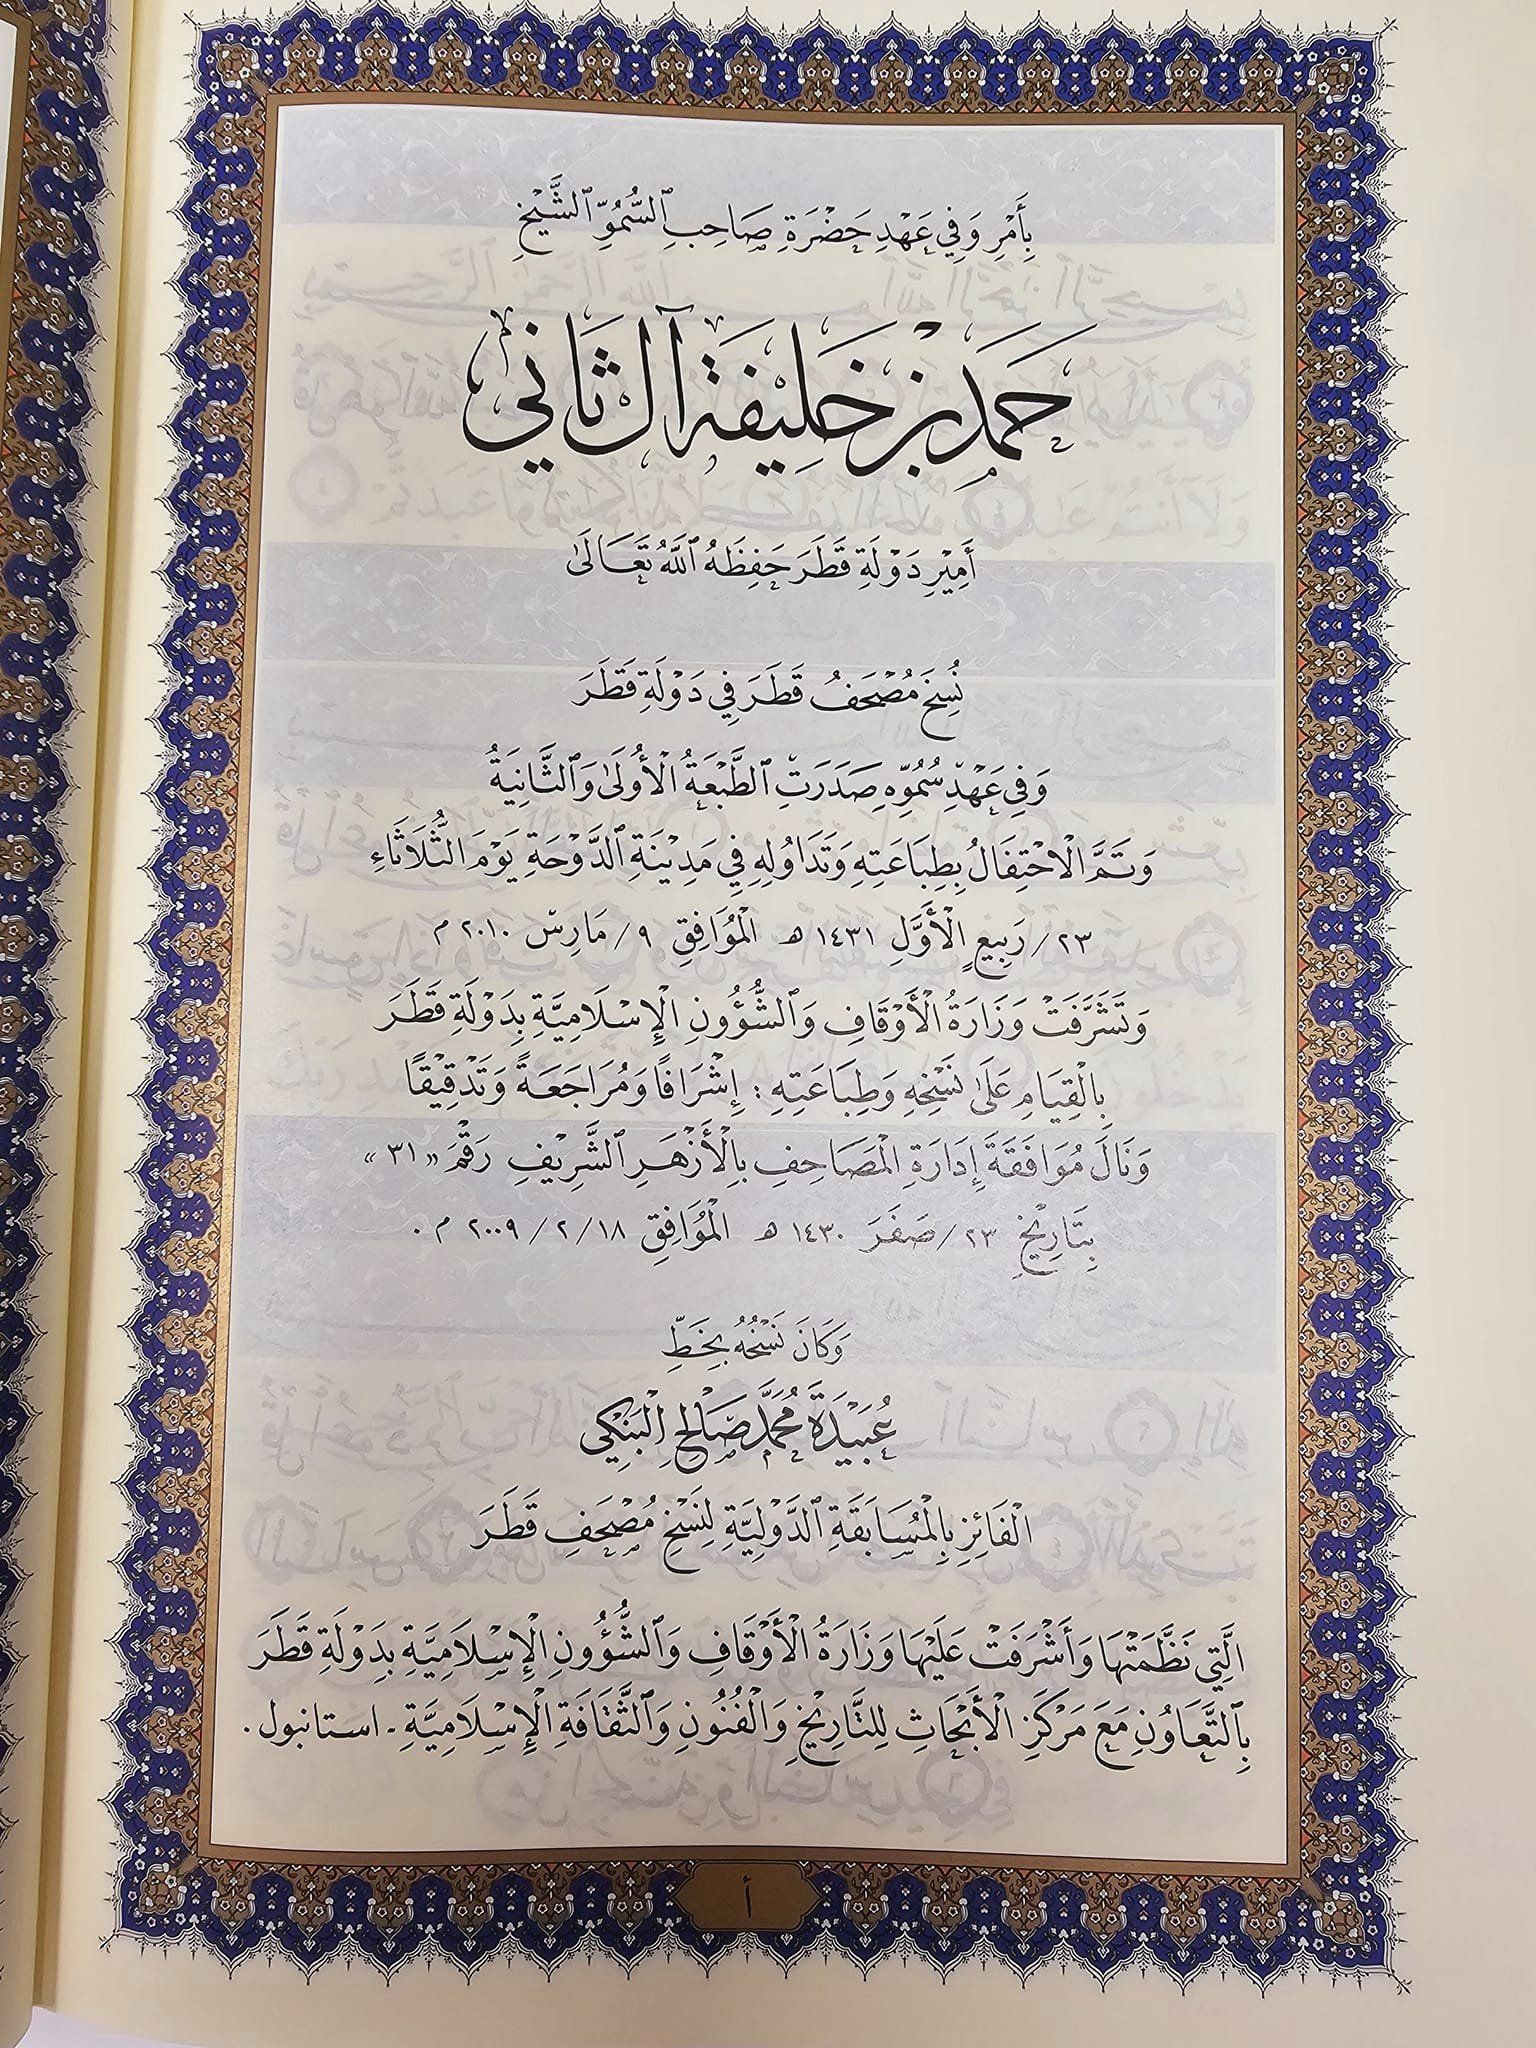 بِأَمْرِ وَفِي عَهْدِ حَضْرَةِ صَاحِبِ ٱلسُّمُوِّ ٱلشَّيْخِ
حَمَد بْن خَلِيفَة آل ثَانِي
أَمِيرِ دَوْلَةِ قَطَرَ حَفِظَهُ ٱللَّهُ تَعَالَىٰ
نُسِخَ مُصْحَفُ قَطَرَ فِي دَوْلَةِ قَطَرَ
وَفِي عَهْدِ سُمُوِّهِ صَدَرَتِ ٱلطَّبْعَةُ الْأُولَىٰ وَٱلثَّانِيَةُ
وَتَمَّ الْاحْتِفَالُ بِطِبَاعَتِهِ وَتَدَاوُلِهِ فِي مَدِيْنَةِ ٱلدَّوْحَةِ يَوْمَ الثُّلَاثَاءِ
٢٣/ رَبِيعٍ الْأَوَّلِ ١٤٣١ هـ الْمُوَافِقِ ٩/ مَارِسْ ٢٠١٠ م
وَتَشَرَّفَتْ وَزَارَةُ الْأَوْقَافِ وَٱلشُّؤُونِ الْإِسْلَامِيَّةِ بِدَوْلَةِ قَطَرَ
بِالْقِيَامِ عَلَىٰ نَسْخِهِ وَطِبَاعَتِهِ : إِشْرَافًا وَمُرَاجَعَةً وَتَدْقِيْقًا
وَنَالَ مُوَافَقَةَ إِدَارَةِ الْمَصَاحِفِ بِالْأَزْهَرِ ٱلشَّرِيْفِ رَقْمَ «٣١»
بِتَارِيْخِ ٢٣/ صَفَرَ ١٤٣٠ هـ الْمُوَافِقِ ١٨/ ٢/ ٢٠٠٩ م .
وَكَانَ نَسْخُهُ بِخَطِّ
عُبَيْدَة مُحَمَّد صَالِح الْبَنْكِي
الْفَائِزِ بِالْمُسَابَقَةِ ٱلدَّوْلِيَّةِ لِنَسْخِ مُصْحَفِ قَطَرَ
الَّتِي نَظَّمَتْهَا وَأَشْرَفَتْ عَلَيْهَا وَزَارَةُ الْأَوْقَافِ وَٱلشُّؤُونِ الْإِسْلَامِيَّةِ بِدَوْلَةِ قَطَرَ
بِٱلتَّعَاوُنِ مَعَ مَرْكَزِ الْأَبْحَاثِ لِلتَّارِيْخِ وَالْفُنُونِ وَٱلثَّقَافَةِ الْإِسْلَامِيَّةِ - استانبول .
أ